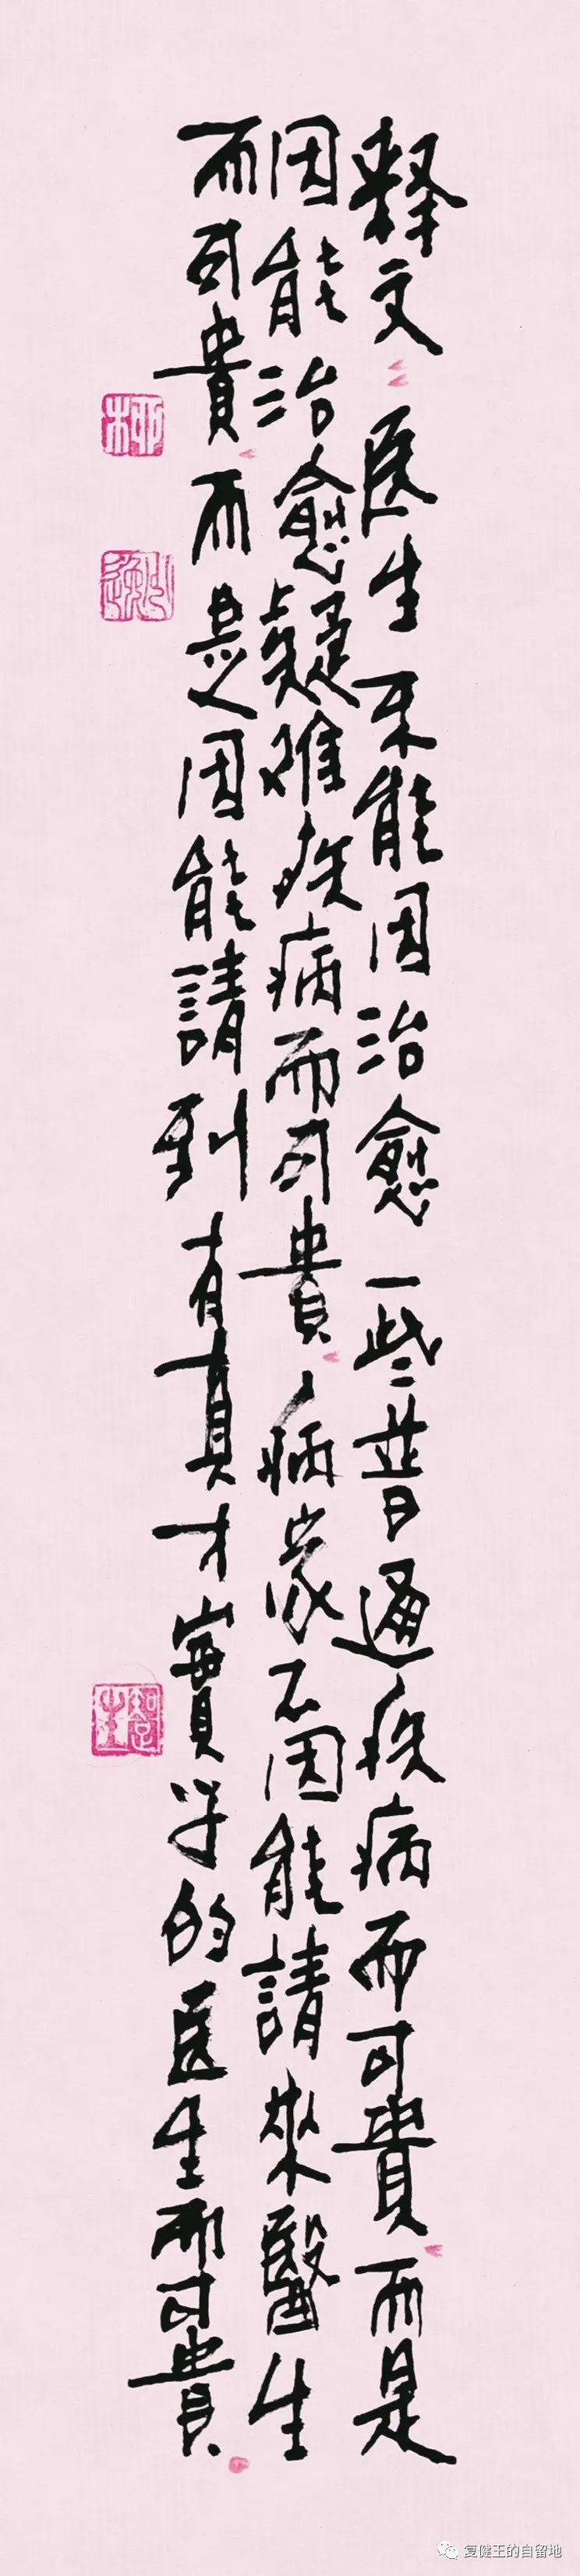 释文：医生不能因治愈一些普通疾病而可貴而是
因能治愈疑难疾病而可貴，病家不因能請來醫生
而可貴，而是因能請到有真才實学的医生而可貴。
复健王的自留地